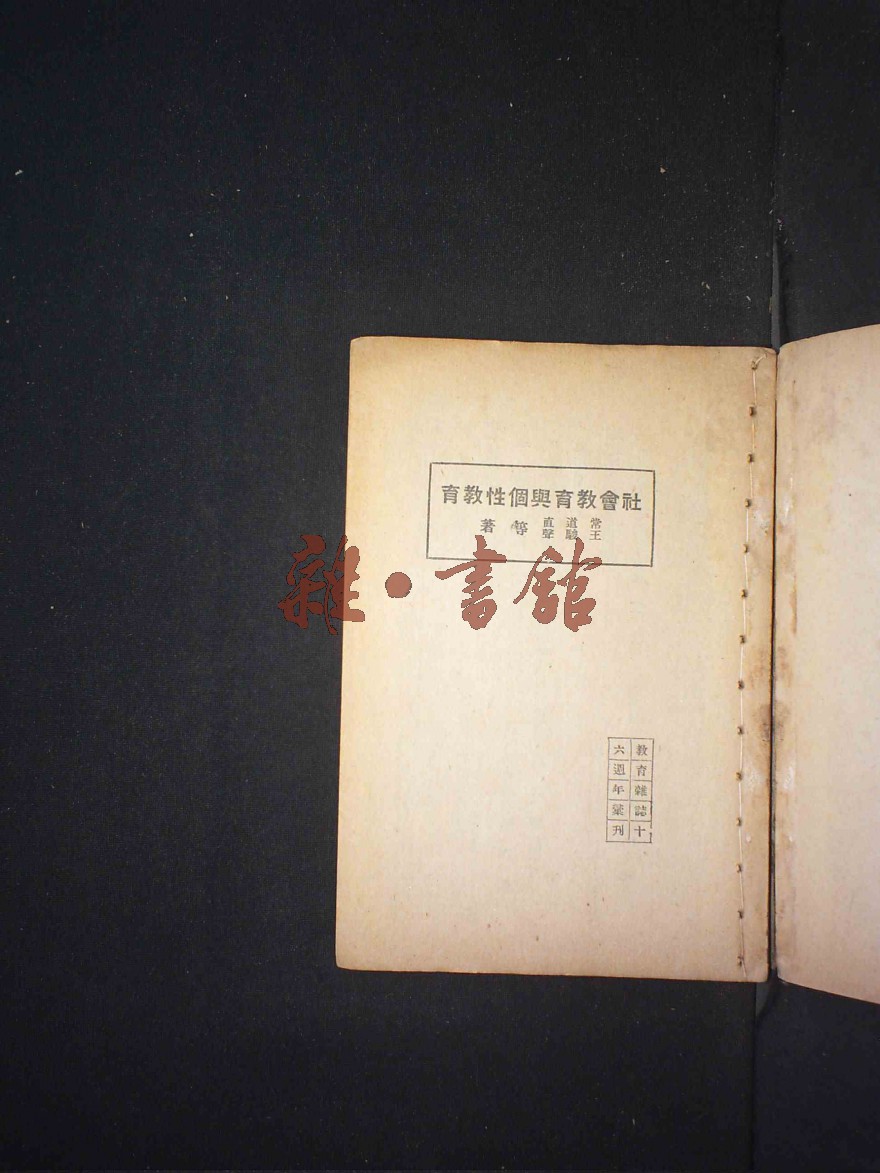 社會教育與個性教育
常道直
王駿聲
等著
雜·書館
教育雜誌十
六週年彙刊